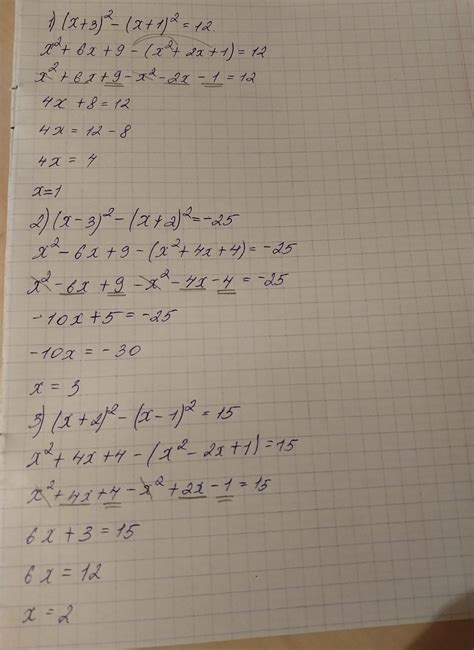 1) (x+3)² - (x+1)² = 12.
x² + 6x + 9 - (x² + 2x + 1) = 12
x² + 6x + 9 - x² - 2x - 1 = 12
4x + 8 = 12
4x = 12 - 8
4x = 4
x = 1
2) (x - 3)² - (x + 2)² = -25
x² - 6x + 9 - (x² + 4x + 4) = -25
x² - 6x + 9 - x² - 4x - 4 = -25
-10x + 5 = -25
-10x = -30
x = 3
3) (x + 2)² - (x - 1)² = 15
x² + 4x + 4 - (x² - 2x + 1) = 15
x² + 4x + 4 - x² + 2x - 1 = 15
6x + 3 = 15
6x = 12
x = 2